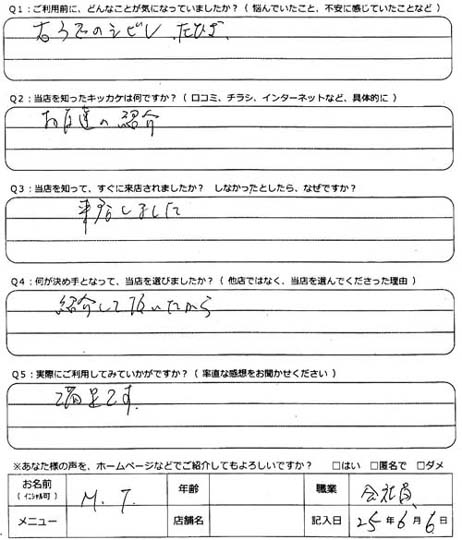 Q1：ご利用前に、どんなことが気になっていましたか？（ 悩んでいたこと、不安に感じていたことなど ）
右うでのシビレ、たひざ、
Q2：当店を知ったキッカケは何ですか？（ 口コミ、チラシ、インターネットなど、具体的に ）
お友達の紹介
Q3：当店を知って、すぐに来店されましたか？　しなかったとしたら、なぜですか？
来店しました
Q4：何が決め手となって、当店を選びましたか？（ 他店ではなく、当店を選んでくださった理由 ）
紹介して頂いたから
Q5：実際にご利用してみていかがですか？（ 率直な感想をお聞かせください ）
満足です。
※あなた様の声を、ホームページなどでご紹介してもよろしいですか？　□はい　□匿名で　□ダメ
お名前（ イニシャル可 ） M. T. 年齢 職業 会社員
メニュー 店舗名 記入日 25年6月6日